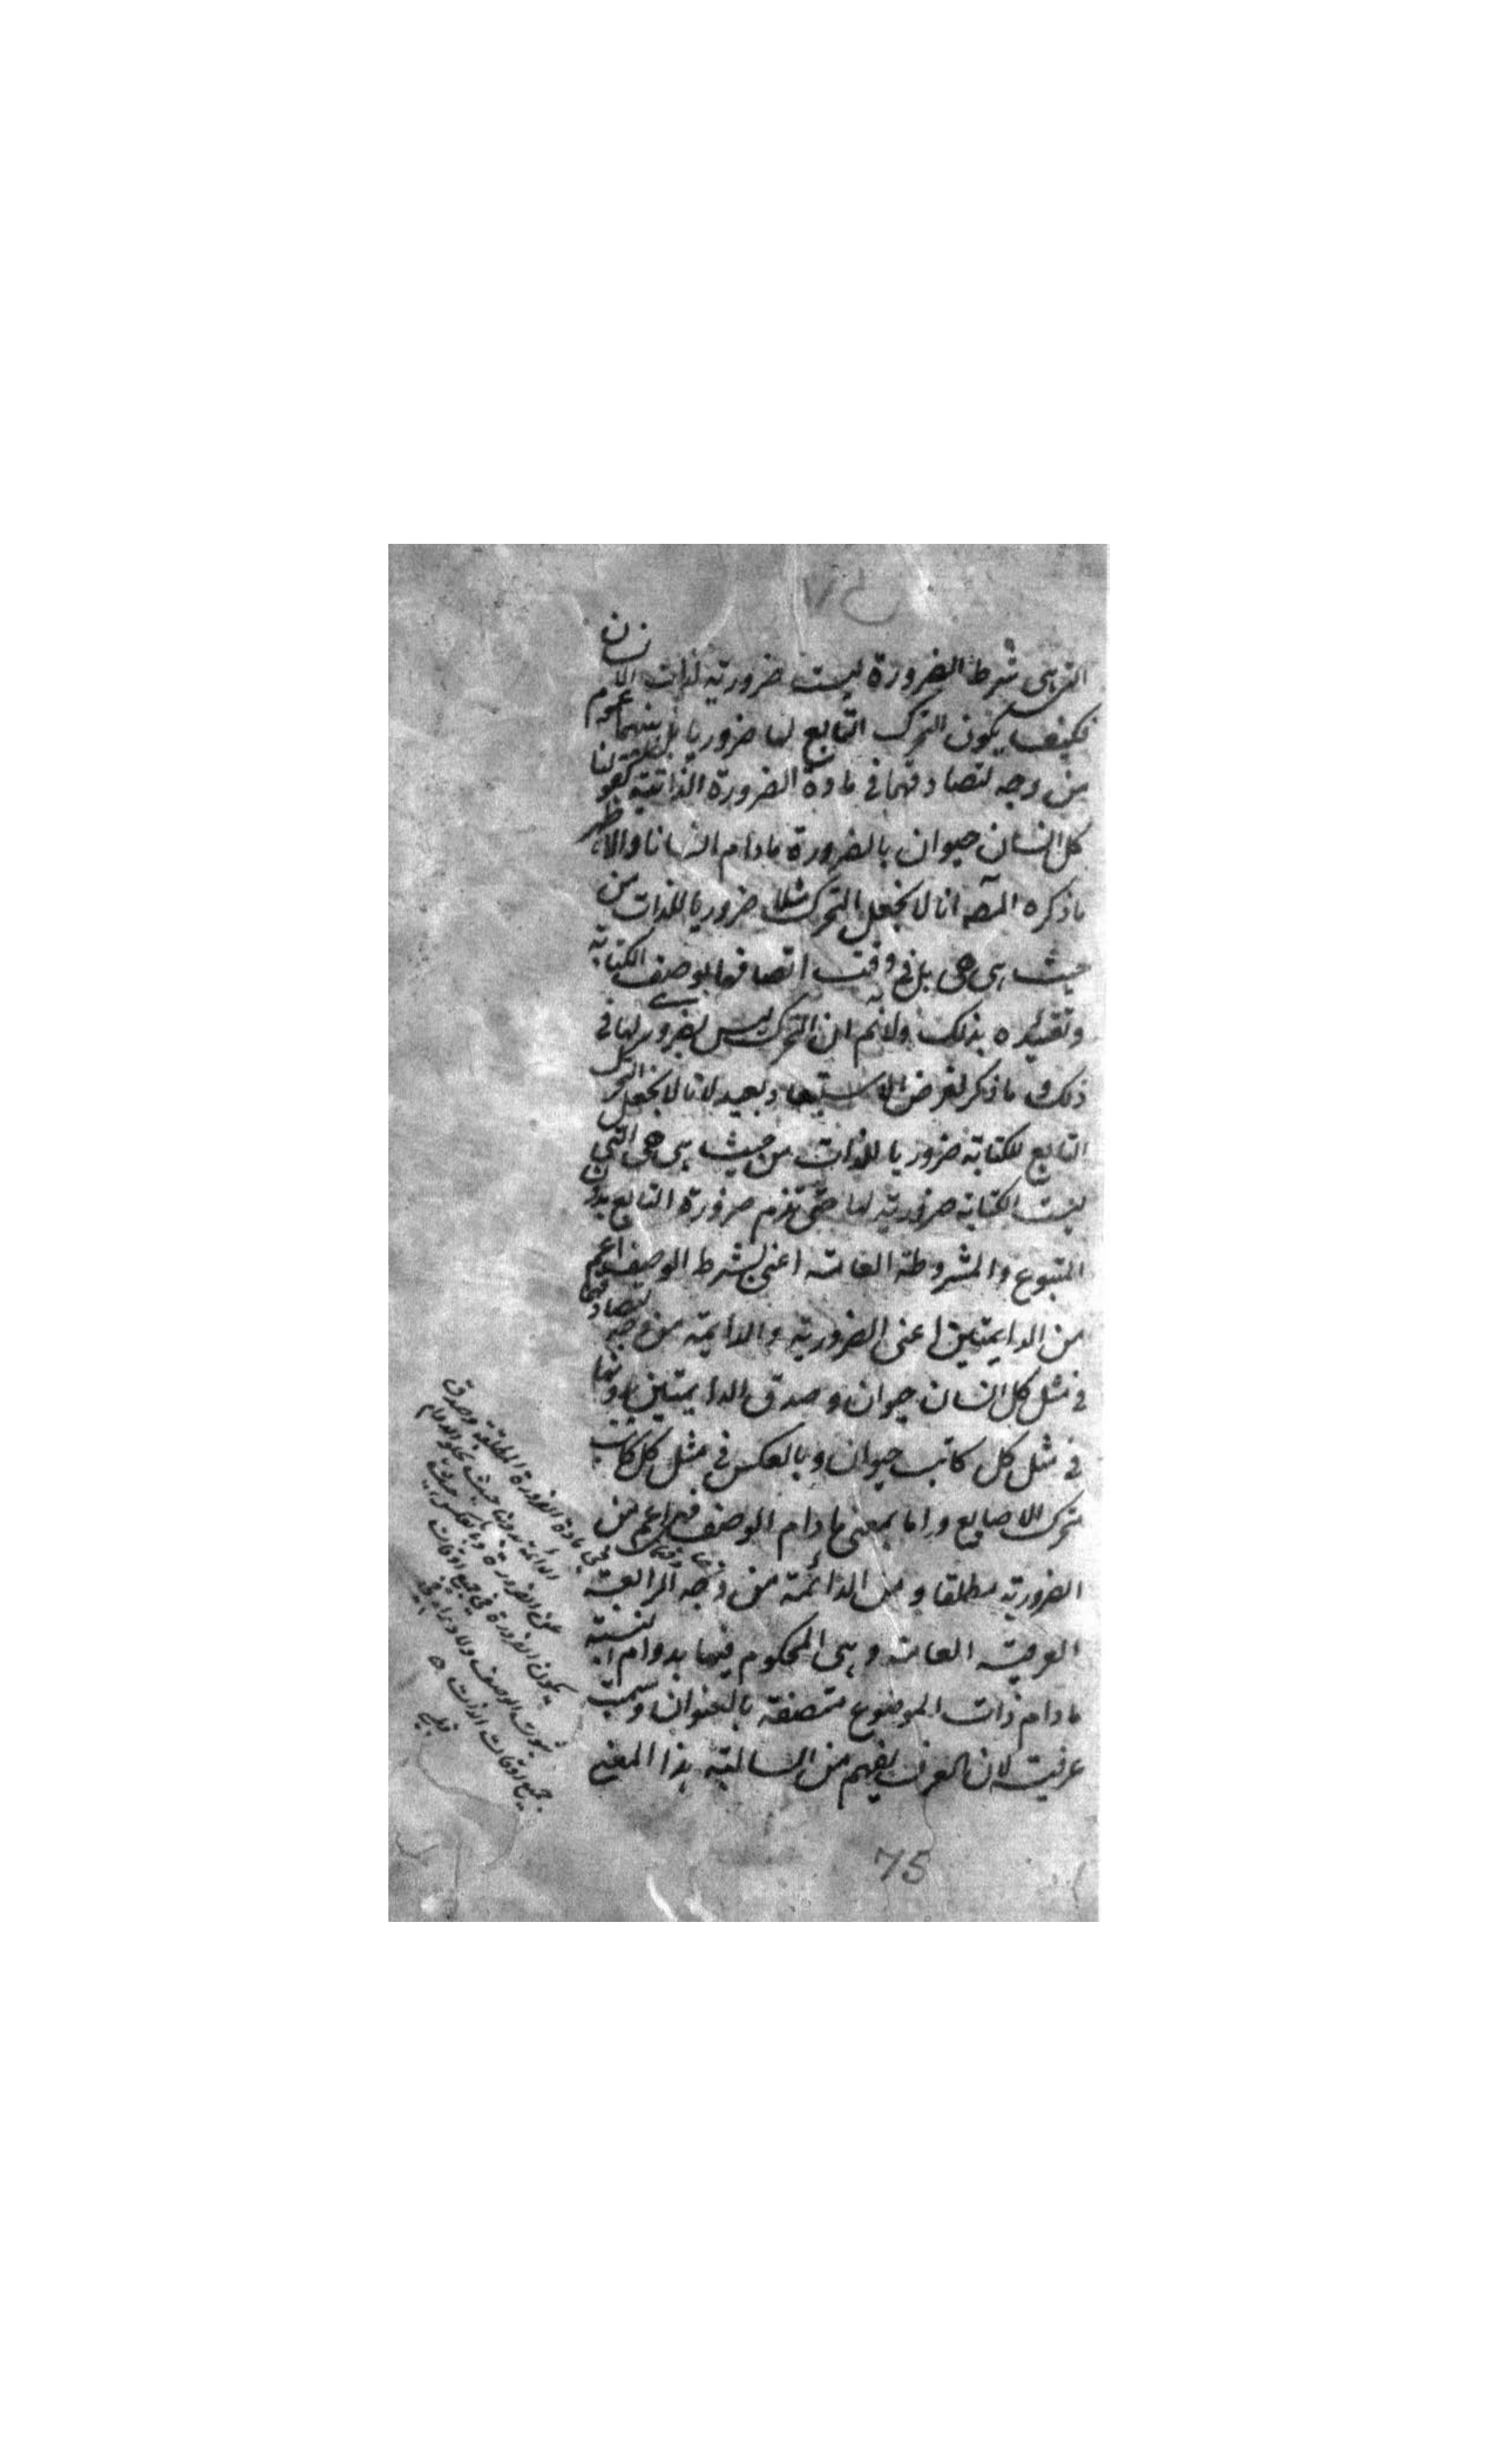 ٧٥
التي هي شرط الضرورة ليست ضرورية لذات الانسان
فكيف يكون التحرك التابع لها ضروريا بل بينهما عموم
من وجه لتصادقهما في مادة الضرورة الذاتية كقولنا
كل انسان حيوان بالضرورة مادام انسانا والاظهر
ماذكره المصـ انا لا نجعل التحرك مثلا ضروريا للذات من
حيث هي هي بل في وقت اتصافها بوصف الكتابة
وتقييده بذلك ولانم ان التحرك ليس بضروري لها في
ذلك وما ذكر لغرض الاستبعاد بعيد لانا لا نجعل التحرك
التابع للكتابة ضروريا للذات من حيث هي هي التي
ليست الكتابة ضرورية لها حتى تلزم ضرورة التابع بدون
المتبوع والمشروطة العامة اعني بشرط الوصف اعم
من الدايمتين اعني الضرورية والدايمة من وجه لتصادقهما
في مثل كل انسان حيوان وصدق الدايمتين دونها
في مثل كل كاتب حيوان وبالعكس في مثل كل كاتب
متحرك الاصابع واما بمعنى مادام الوصف فهي اعم من
الضرورية مطلقا ومن الدائمة من وجه الرابعة
العرفية العامة وهي المحكوم فيها بدوام النسبة
مادام ذات الموضوع متصفة بالعنوان وسميت
عرفية لان العرف يفهم من السالبة هذا المعنى
في مادة الضرورة المطلقة وصدق
الدائمة بدونها حيث يخلو الدوام
عن الضرورة وبالعكس حيث
يكون الضرورة في جميع اوقات
ثبوت الوصف ولا دوام في
جميع اوقات الذات
75